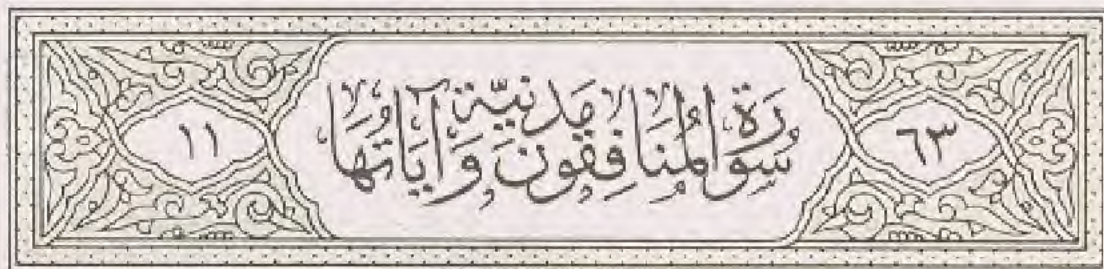 ٦٣
سُورَة المُنَافِقُونَ مَدَنيَّة وَآيَاتُهَا
١١